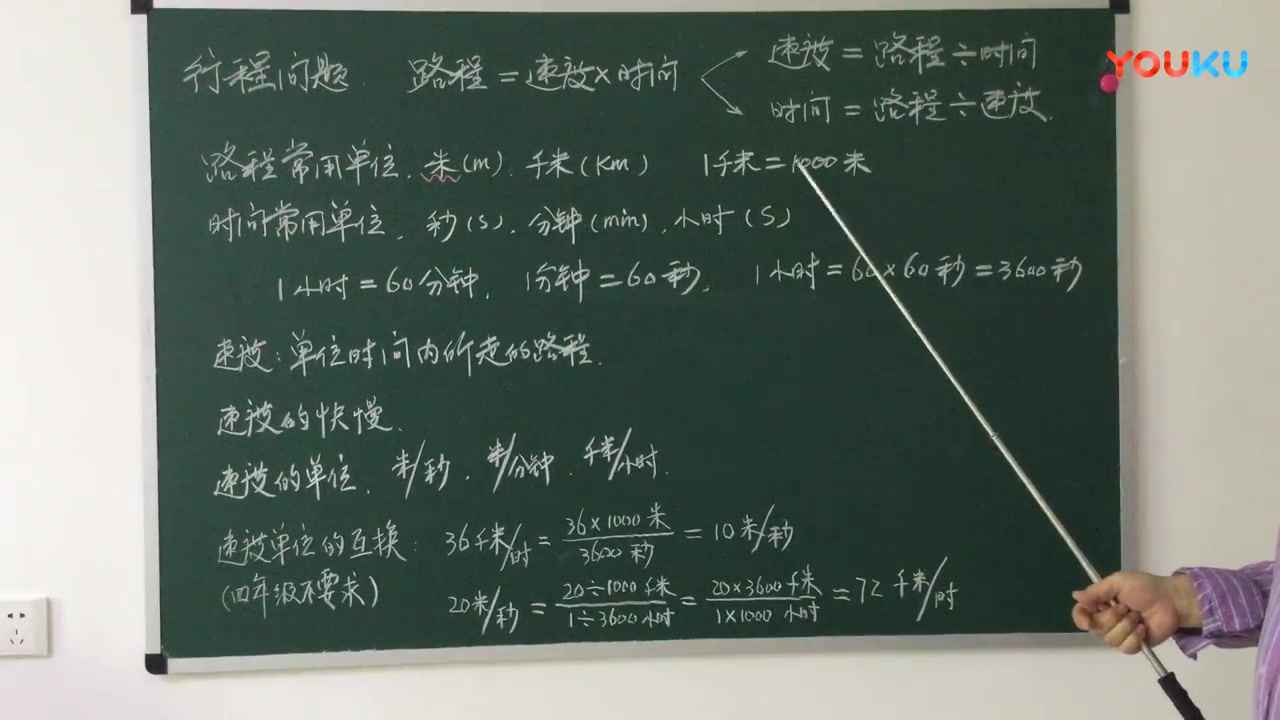 行程问题. 路程=速度×时间
速度=路程÷时间
时间=路程÷速度.
YOUKU
路程常用单位. 米(m). 千米(Km) 1千米=1000米
时间常用单位. 秒(S). 分钟(min). 小时(S)
1小时=60分钟. 1分钟=60秒. 1小时=60×60秒=3600秒
速度:单位时间内所走的路程.
速度的快慢.
速度的单位. 米/秒. 米/分钟. 千米/小时.
速度单位的互换: 36千米/时=36×1000米/3600秒=10米/秒
(四年级不要求) 20米/秒=20÷1000千米/1÷3600小时=20×3600千米/1×1000小时=72千米/时